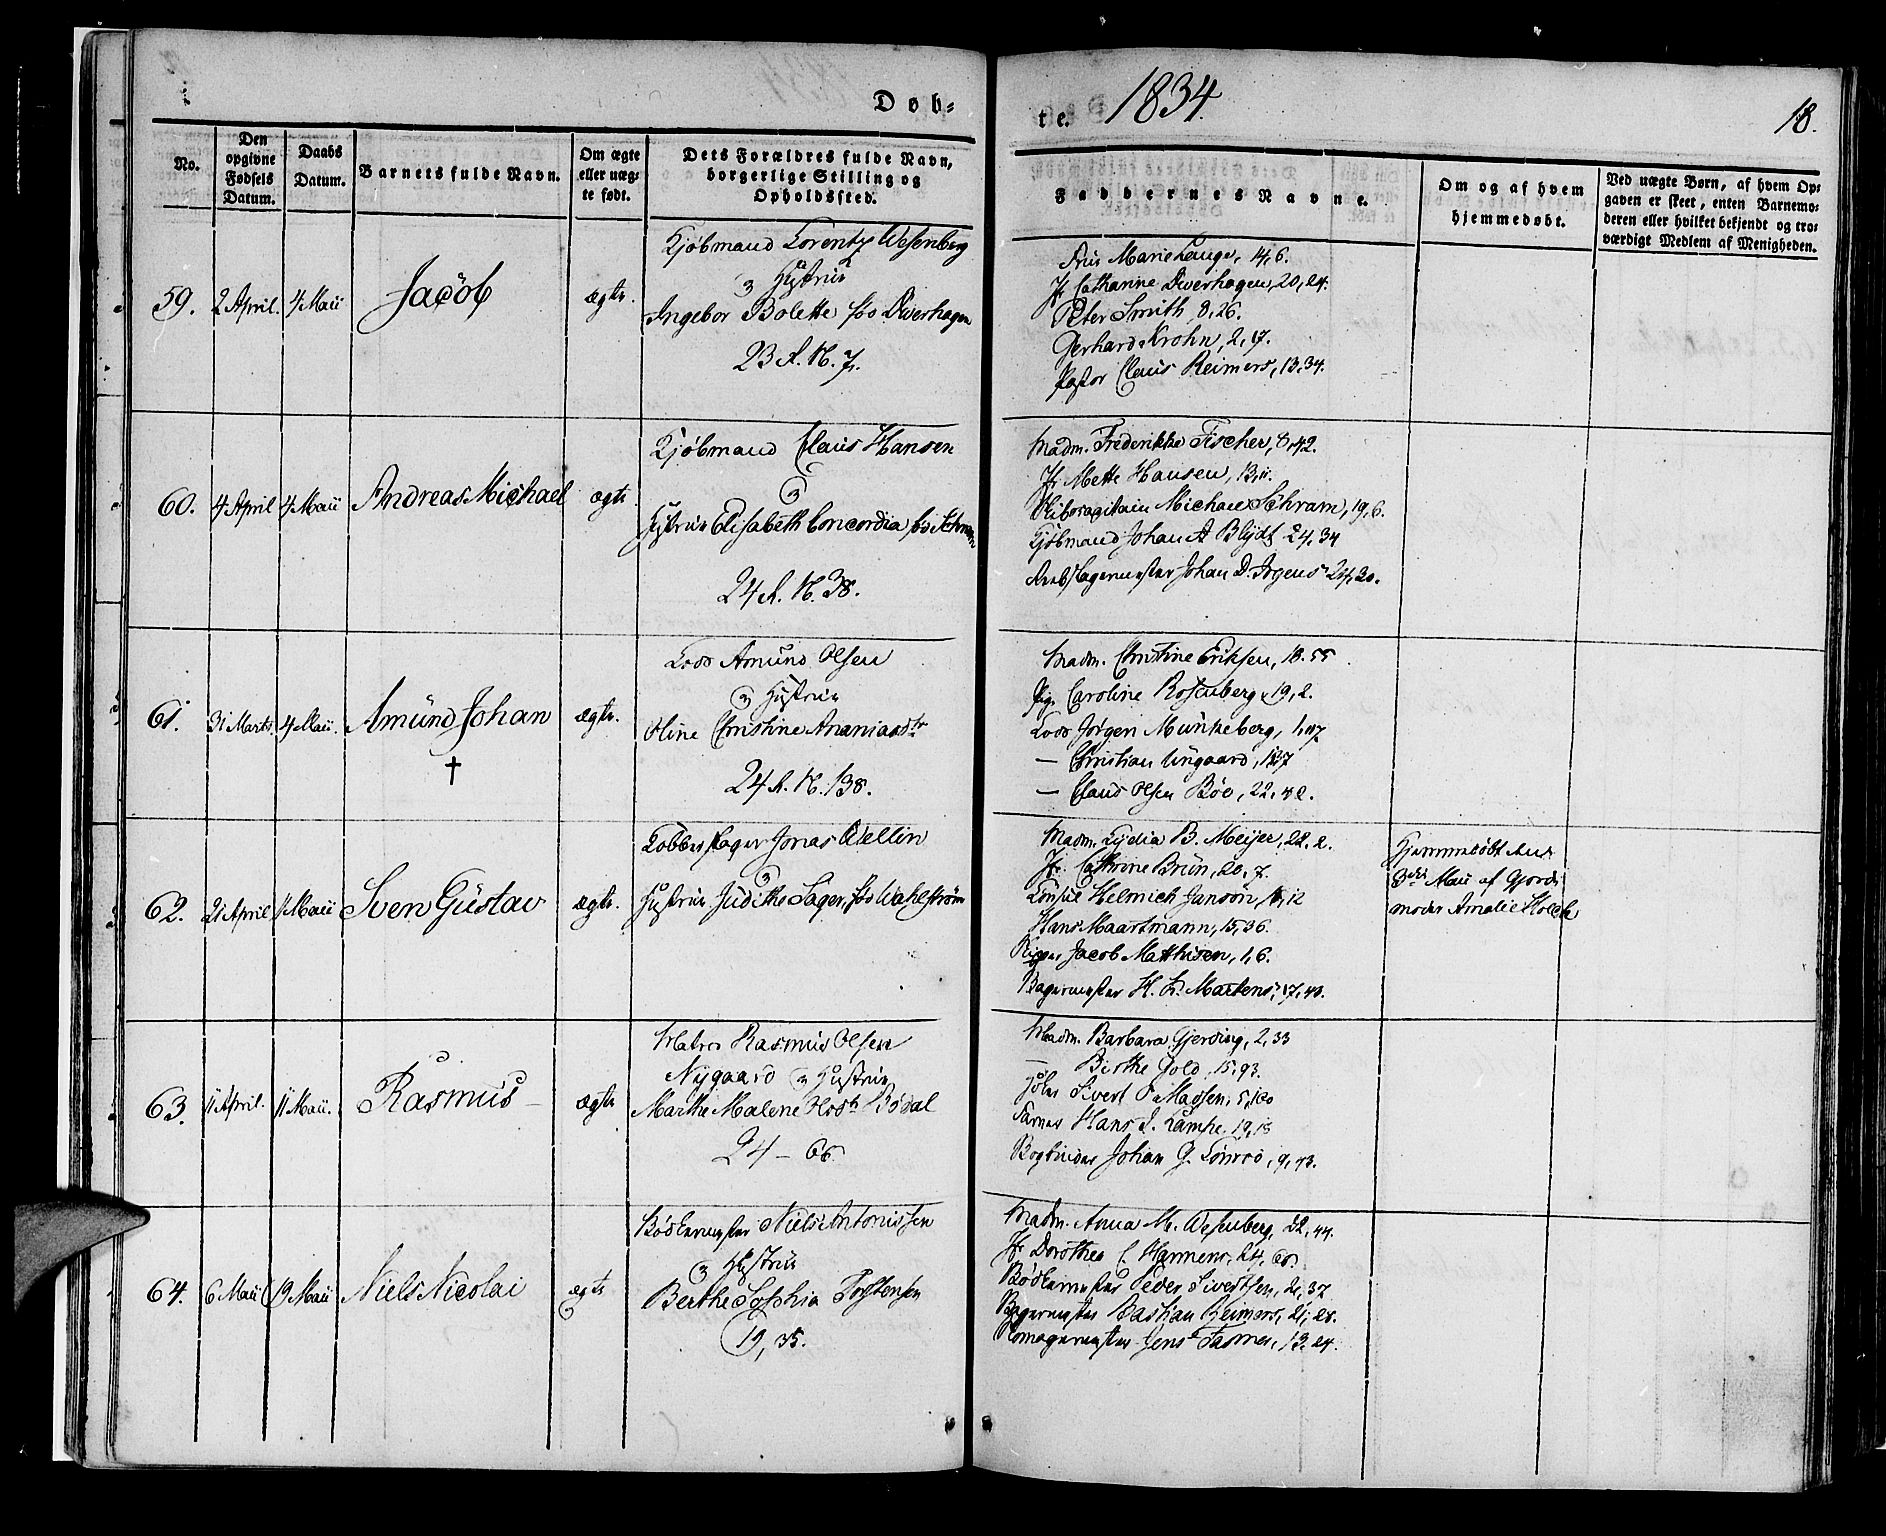 Døb-
te. 1834. 18.
No.
Den
opgivne
Fødsels
Datum.
Daabs
Datum.
Barnets fulde Navn.
Om ægte
eller uæg-
te født.
Dets Forældres fulde Navn,
borgerlige Stilling og
Opholdssted.
Faddernes Navne.
Om og af hvem
hjemmedøbt.
Ved uægte Børn, af hvem Op-
gaven er skeet, enten Barnemo-
deren eller hvilket bekjendt og tro-
værdigt Medlem af Menigheden.
59. 2 April. 4 Maii Jacob ægte.
Kjøbmand Lorentz Wesenberg
Hustrue
Ingebor Bolette Døverhagen
23 R. N. 7.
Marie Lange, 14, 6.
Jf. Catharine Døverhagen, 20, 24.
Peter Smith, 8, 26.
Gerhard Krohn, 2, 17.
Pastor Claus Reimers, 13, 34.
60. 4 April 4 Maii Andreas Michael ægte
Kjøbmand Claus Hansen
Hustrue Elisabeth Concordia
24 R. N. 38.
Madm. Frederikke Fischer, 8, 42.
Jf. Mette Hansen, 13, 11.
Michael Schram, 19, 6.
Kjøbmand Johan A Blydt 24, 34
Johan D. Irgens 24, 30.
61. 31 Marts. 4 Maii. Amund Johan ægte.
†
Lods Amund Olsen
Hustrue
Oline Christine Ananiasdtr
24 R. N. 138.
Madm. Christine Eriksen, 18. 55
Pig. Caroline Rosenberg, 19, 2.
Lods Jørgen Munkeberg, 1, 117
— Christian Ungaard,
— Claus Olsen Bøe, 22,
62. 21 April 11 Maii Sven Gustav ægte.
Kobberslager Jonas Wellin
Hustrue Judithe Sager, Wahlstrøm
Madm. Lydia B. Meyer, 22, 2.
Jf. Cathrine Brun, 20, 7.
Consul Helmich Janson, 12
Hans Maartmann, 15, 36.
Jacob Mathisen, 1, 6.
Bagermester H. L. Martens, 17, 40.
Hjemmedøbt den
3die Maii af Gjord-
moder Amalie Holck
63. 11 April. 11 Maii. Rasmus — ægte
Matros Rasmus Olsen
Nygaard Hustrue
Marthe Malene Olsdtr Bødal
24 — 66
Madm. Barbara Gjerding, 2, 33
— Birthe Gold, 15, 93.
Sivert P. Madsen, 5, 100
Hans J. Lampe. 19, 18
Bogbinder Johan G. 9, 43.
64. 6 Maii 19 Maii Niels Nicolai ægte
Bødkermester Niels Antonissen
Hustrue
Berthe Sophia Torstensen
19, 35.
Madm. Anna M. Wesenberg, 22, 44.
Jf. Dorothea C. Harmens, 24, 60.
Bødkermester Peder Sivertsen, 21, 37
Bagermester Bastian Reimers, 21, 28.
Jens Fasmer, 13, 24.